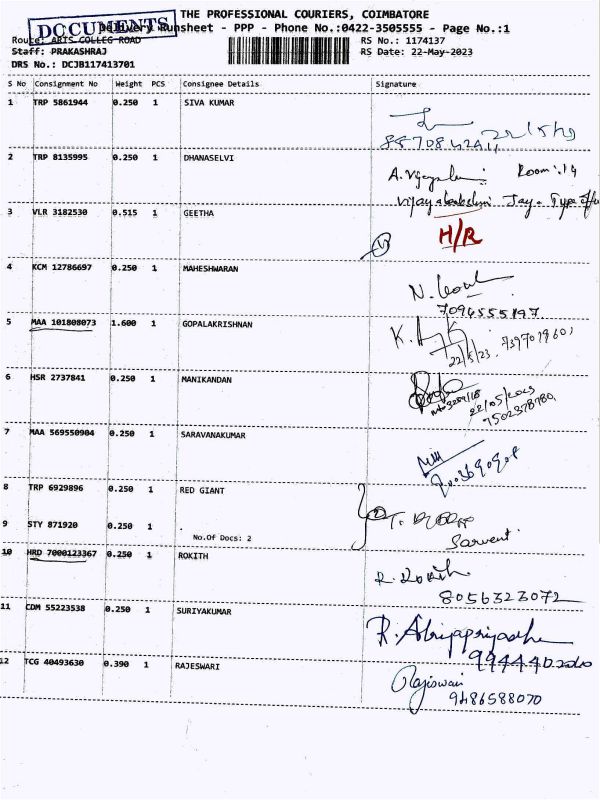 THE PROFESSIONAL COURIERS, COIMBATORE
DOCUMENTS
Delivery Runsheet - PPP - Phone No.:0422-3505555 - Page No.:1
Route: ARTS COLLEG ROAD
RS No.: 1174137
Staff: PRAKASHRAJ
RS Date: 22-May-2023
DRS No.: DCJB117413701
S No Consignment No Weight PCS Consignee Details Signature
1 TRP 5861944 0.250 1 SIVA KUMAR
2 TRP 8135995 0.250 1 DHANASELVI
Room: 14
3 VLR 3182530 0.515 1 GEETHA
H/R
4 KCM 12786697 0.250 1 MAHESHWARAN
7094555197
5 MAA 101808073 1.600 1 GOPALAKRISHNAN
22/5/23
6 HSR 2737841 0.250 1 MANIKANDAN
22/05/2023
7502378780
7 MAA 569550904 0.250 1 SARAVANAKUMAR
8 TRP 6929896 0.250 1 RED GIANT
9 STY 871920 0.250 1
No.Of Docs: 2
Sarvent
10 HRD 7000123367 0.250 1 ROKITH
R. Rokith
8056323072
11 CDM 55223538 0.250 1 SURIYAKUMAR
12 TCG 40493630 0.390 1 RAJESWARI
Rajiswari
9486588070